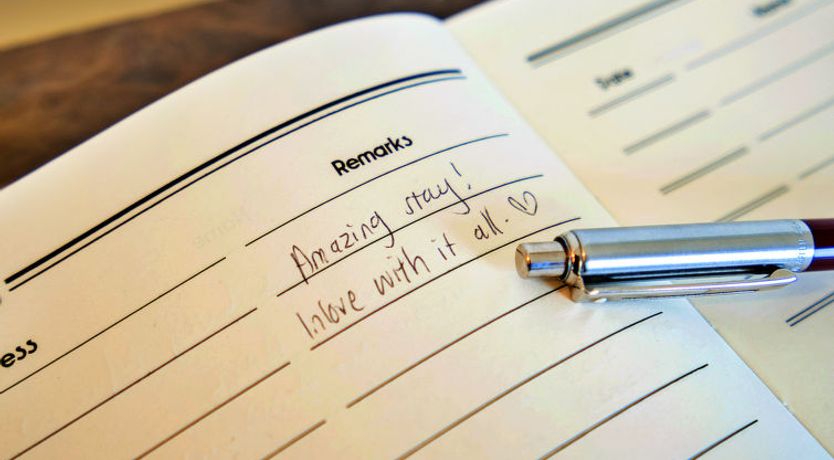 Remarks
Amazing stay!
Inlove with it all. ♡
ess
Date